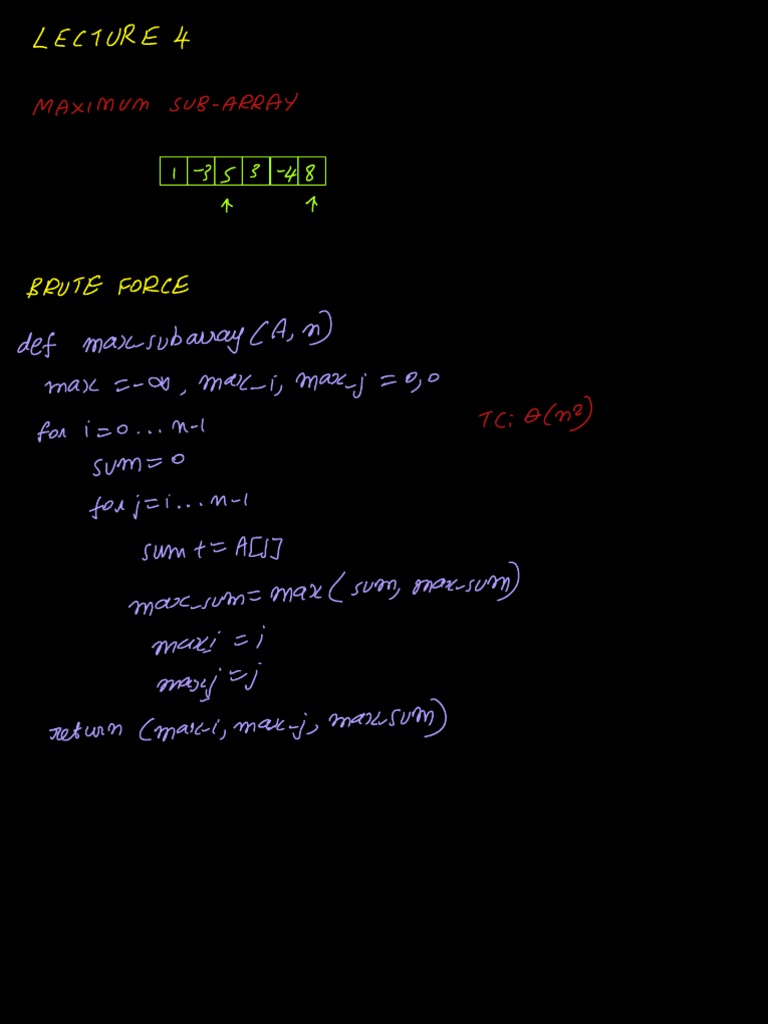 LECTURE 4
MAXIMUM SUB-ARRAY
1 -3 5 3 -4 8
↑ ↑
BRUTE FORCE
def max-subarray(A, n)
max = -∞, max_i, max_j = 0,0
for i=0...n-1
TC: θ(n²)
sum=0
for j=i...n-1
sum += A[j]
max_sum=max(sum, max_sum)
max_i = i
max_j = j
return (max-i, max-j, max-sum)